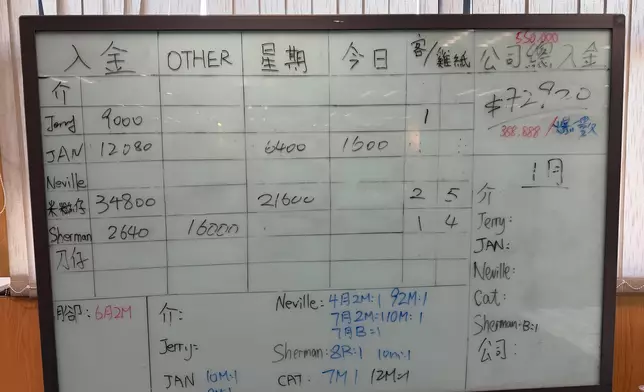 入金 OTHER 星期 今日 客/雞紙
介
Jerry 9000 1
JAN 12080 6400 1500
Neville
米粒仔 34800 21600 2 5
Sherman 2640 16000 1 4
刀仔
550,000
公司總入金
$72,920
388,888/
1月
介
Jerry:
JAN:
Neville:
Cat:
Sherman:B=1
公司:
腳: 6月2M
介:
Jerry:
JAN 10M:1
Neville: 4月2M:1 92M:1
7月2M:1 10M:1
7月B=1
Sherman: 8B:1 10m:1
CAT: 7M 1 12M:1